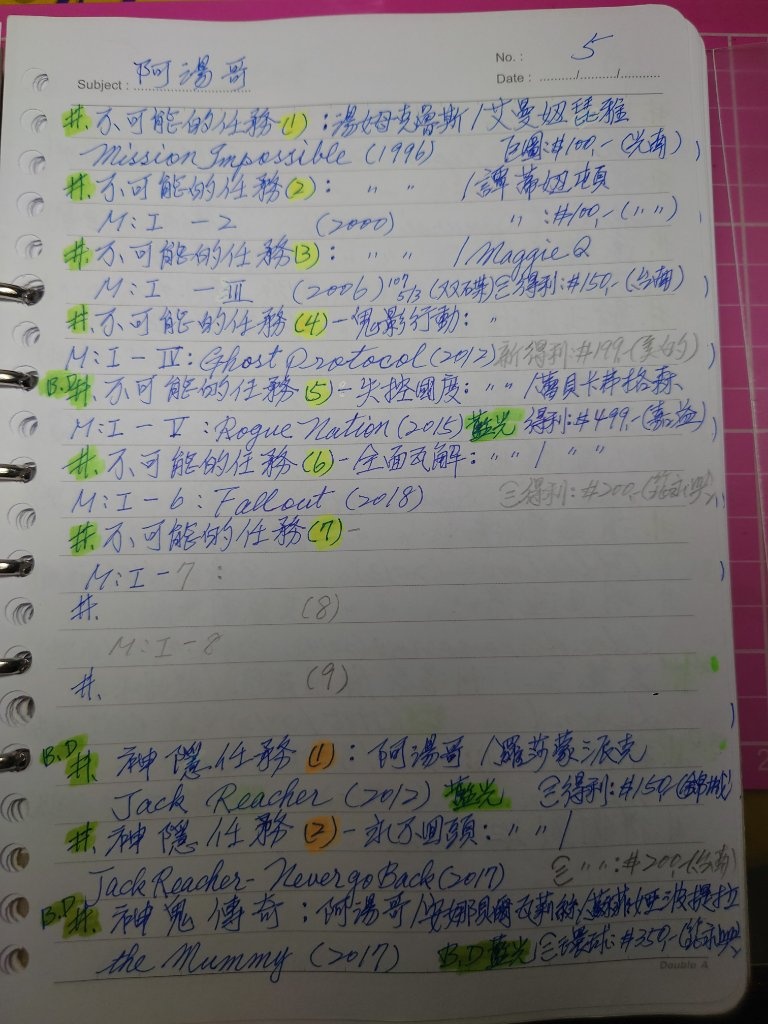 No. : 5
Subject : 阿湯哥
Date : ........./........./.........
#. 不可能的任務(1) : 湯姆克魯斯 / 艾曼妞琵雅
Mission Impossible (1996) 巨圖:#100,-(光南)
#. 不可能的任務(2) : 〃 〃 / 譚蒂妞頓
M:I - 2 (2000) 〃 :#100,-(〃〃)
#. 不可能的任務(3) : 〃 〃 / Maggie Q
M:I - III (2006) 107 5/3 (双碟) 得利:#150,-(台南)
#. 不可能的任務(4) - 鬼影行動: 〃
M:I - IV: Ghost Protocol (2012) 新得利:#199,-(美的)
B.D #. 不可能的任務(5) - 失控國度: 〃〃 / 蕾貝卡弗格森
M:I - V : Rogue Nation (2015) 藍光 得利:#499,-(嘉益)
#. 不可能的任務(6) - 全面瓦解: 〃〃 / 〃〃
M:I - 6 : Fallout (2018) 得利:#200,-
#. 不可能的任務(7) -
M:I - 7 :
#. (8)
M:I - 8
#. (9)
B.D #. 神隱任務(1) : 阿湯哥 / 羅莎蒙派克
Jack Reacher (2012) 藍光 得利:#150,-
#. 神隱任務(2) - 永不回頭: 〃〃 /
Jack Reacher - Never go Back (2017) 〃〃:#200,-(台南)
B.D #. 神鬼傳奇 : 阿湯哥 / 安娜貝爾瓦莉絲 / 蘇菲亞波提拉
the Mummy (2017) B.D 藍光 環球:#350,-
Double A